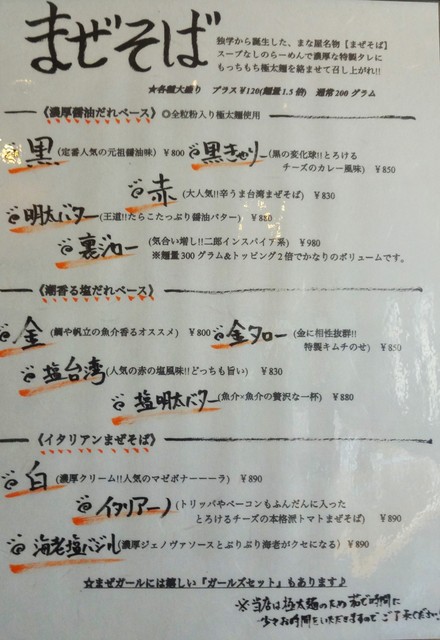 まぜそば
独学から誕生した、まな屋名物【まぜそば】
スープなしのらーめんで濃厚な特製タレに
もっちもち極太麺を絡ませて召し上がれ!!
★各種大盛り プラス¥120(麺量1.5倍) 通常200グラム
《濃厚醤油だれベース》 ◎全粒粉入り極太麺使用
黒 (定番人気の元祖醤油味) ¥800
黒きゃりー (黒の変化球!!とろける
チーズのカレー風味) ¥850
赤 (大人気!!辛うま台湾まぜそば) ¥830
明太バター (王道!!たらこたっぷり醤油バター) ¥880
裏ジロー (気合い増し!!二郎インスパイア系) ¥980
※麺量300グラム&トッピング2倍でかなりのボリュームです。
《潮香る塩だれベース》
金 (鯛や帆立の魚介香るオススメ) ¥800
金タロー (金に相性抜群!!
特製キムチのせ) ¥850
塩台湾 (人気の赤の塩風味!!どっちも旨い) ¥830
塩明太バター (魚介×魚介の贅沢な一杯) ¥880
《イタリアンまぜそば》
白 (濃厚クリーム!!人気のマゼボナーーーラ) ¥890
イタリアーノ (トリッパやベーコンもふんだんに入った
とろけるチーズの本格派トマトまぜそば) ¥890
海老塩バジル (濃厚ジェノヴァソースとぷりぷり海老がクセになる) ¥890
☆まぜガールには嬉しい『ガールズセット』もあります♪
※当店は極太麺のため茹で時間に
少々お時間をいただきますのでご了承ください